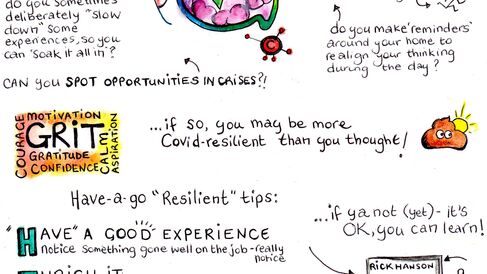 do you sometimes
deliberately "slow
down" some
experiences, so you
can 'soak it all in'?
do you make 'reminders'
around your home to
realign your thinking
during the day?
CAN YOU SPOT OPPORTUNITIES IN CRISES?!
COURAGE
MOTIVATION
GRIT
GRATITUDE
CONFIDENCE
CALM
ASPIRATION
...if so, you may be more
Covid-resilient than you thought!
Have-a-go "Resilient" tips:
"HAVE" A GOOD EXPERIENCE
notice something gone well on the job - really
notice
...if ya not (yet) - it's
OK, you can learn!
RICK HANSON